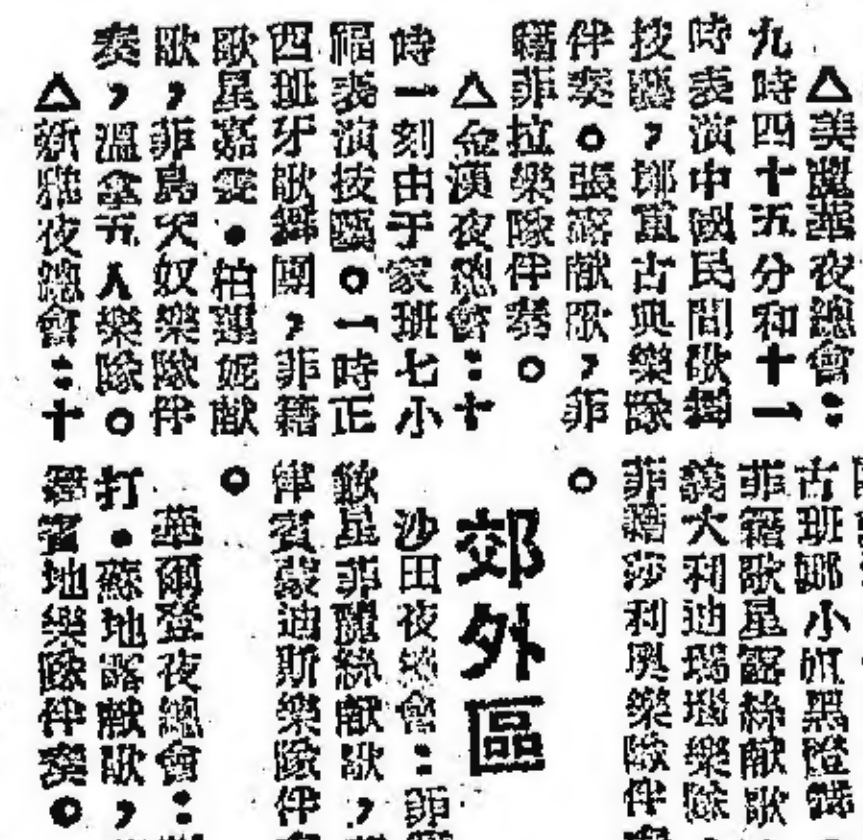 △美麗華夜總會：
九時四十五分和十一
時表演中國民間歌舞
技藝，挪亞古典樂隊
伴奏。張露獻歌，菲
籍菲拉樂隊伴奏。
△金漢夜總會：十
時一刻由于家班七小
福表演技藝。一時正
西班牙歌舞團，菲籍
歌星嘉雯•柏蓮妮獻
歌，菲島天奴樂隊伴
奏，溫拿五人樂隊。
△新雅夜總會：十
古班娜小姐黑燈舞
菲籍歌星露絲獻歌
義大利迪瑙瑙樂隊
菲籍莎利奧樂隊伴
。
郊外區
沙田夜總會：菲
歌星菲麗絲獻歌，
律賓蒙迪斯樂隊伴
。
華爾登夜總會：
打•蘇地露獻歌，
律賓地樂隊伴奏。